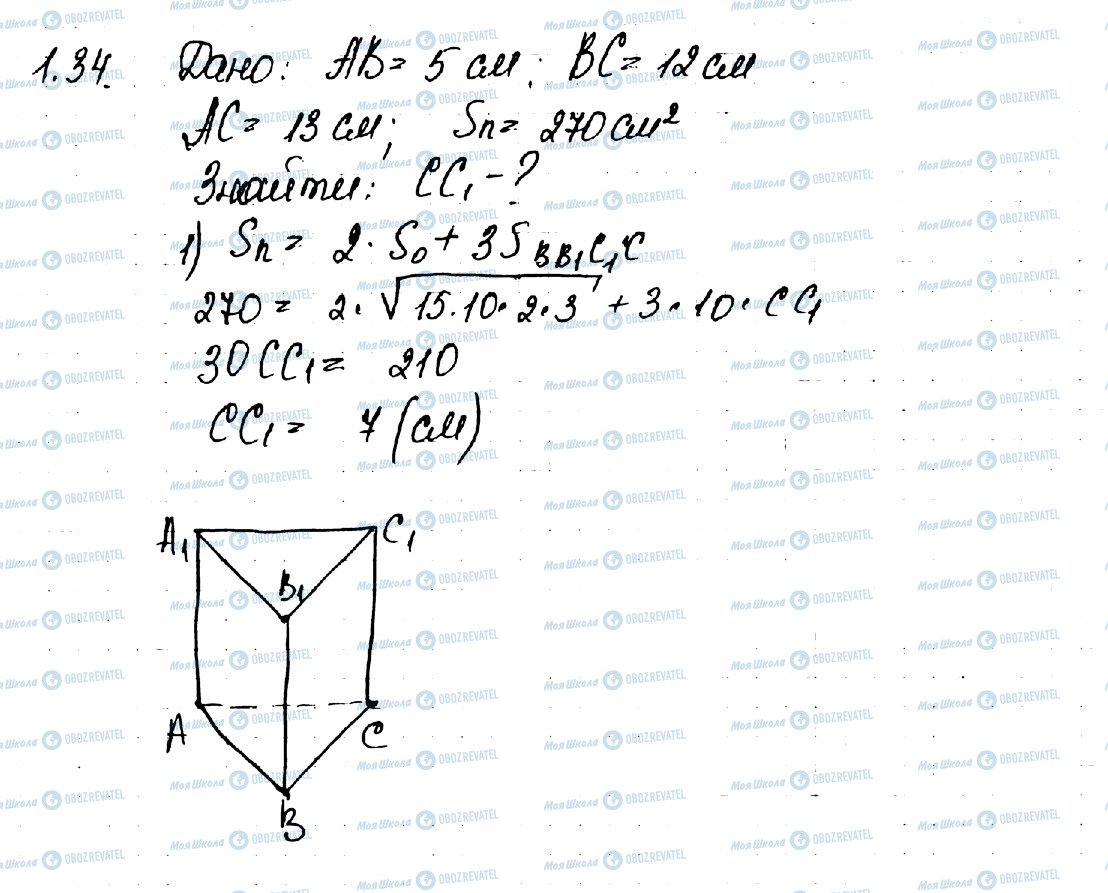 1.34. Дано: AB = 5 см; BC = 12 см
AC = 13 см; Sп = 270 см²
Знайти: CC₁ - ?
1) Sп = 2 · S₀ + 3S BB₁C₁C
270 = 2 · √15·10·2·3 + 3 · 10 · CC₁
30CC₁ = 210
CC₁ = 7 (см)
A₁ C₁
B₁
A C
B
МояШкола OBOZREVATEL